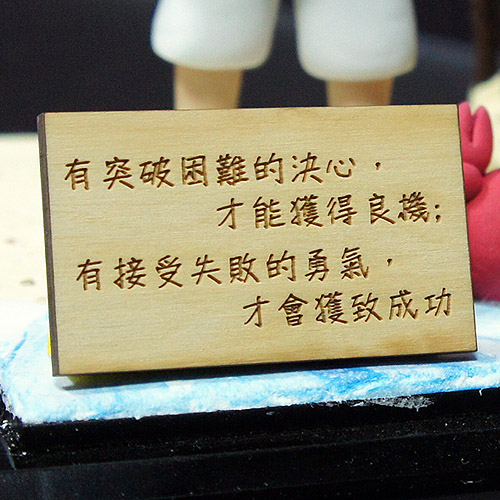 有突破困難的決心，
才能獲得良機；
有接受失敗的勇氣，
才會獲致成功